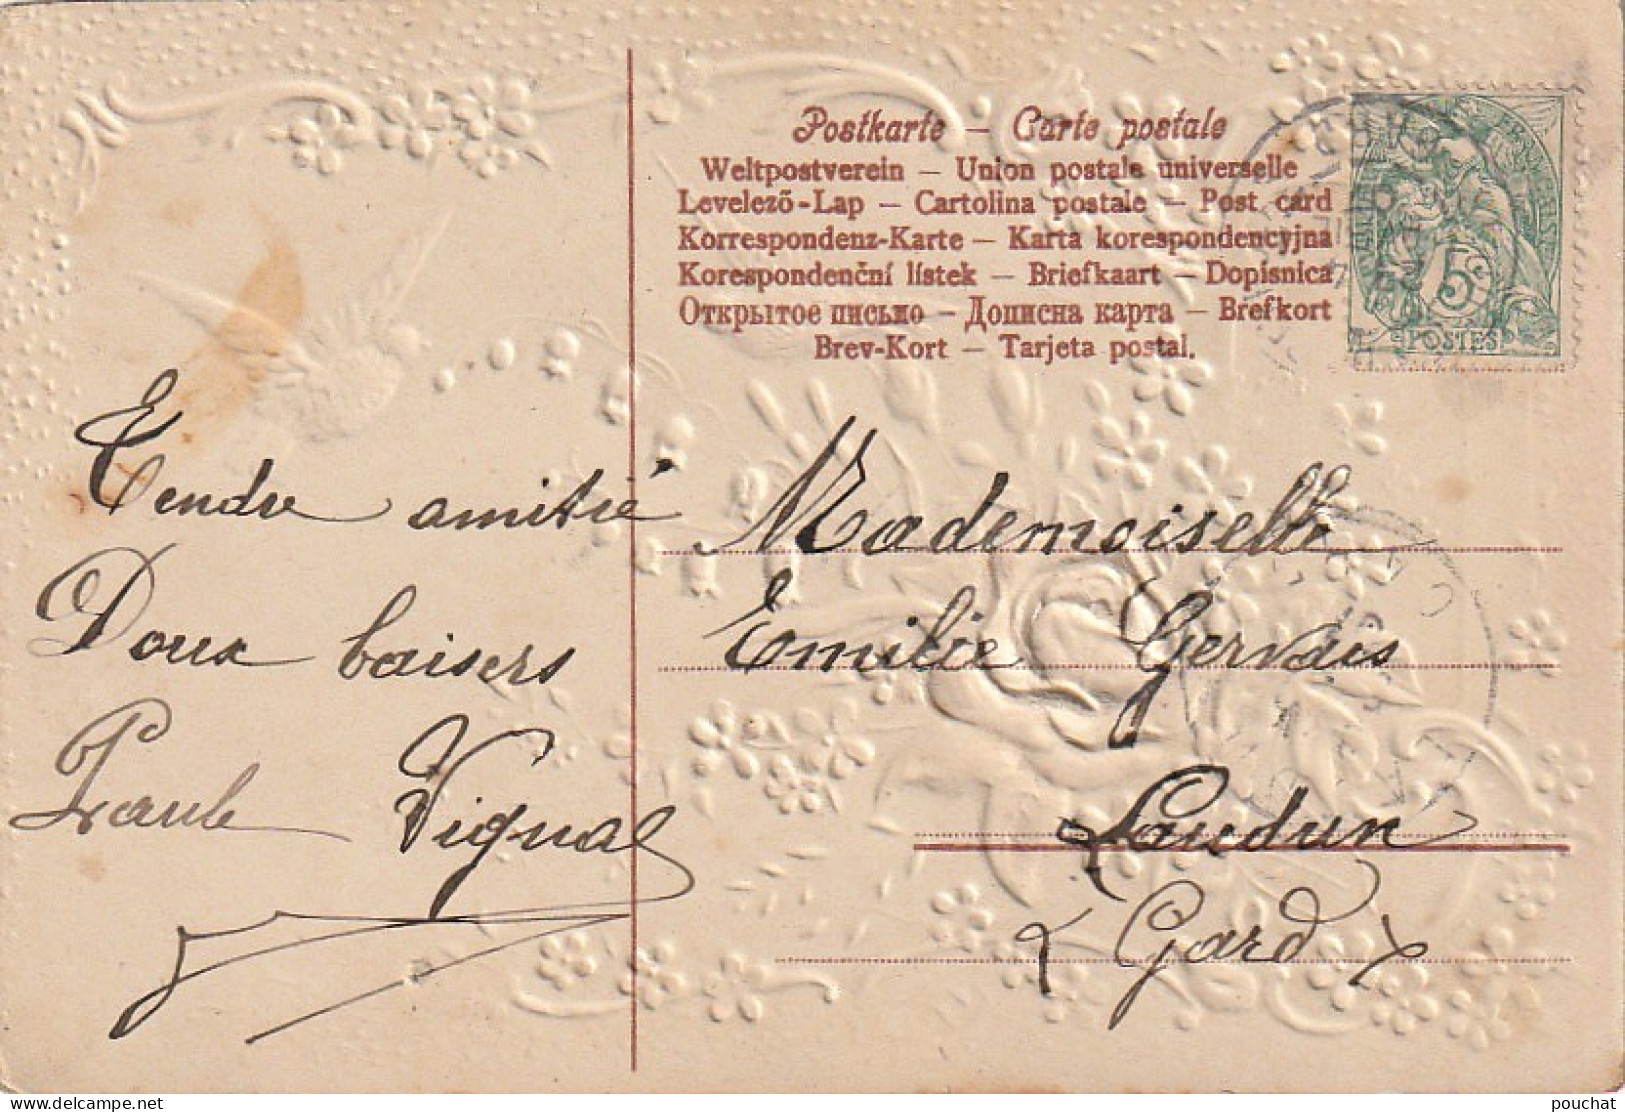 Postkarte – Carte postale
Weltpostverein – Union postale universelle
Levelező-Lap – Cartolina postale – Post card
Korrespondenz-Karte – Karta korespondencyjna
Korespondenční lístek – Briefkaart – Dopisnica
Открытое письмо – Дописна карта – Brefkort
Brev-Kort – Tarjeta postal.
5c
POSTES
Tendre amitié
Doux baisers
Paule Vignal
Mademoiselle
Emilie Gervais
Laudun
(Gard)
www.delcampe.net
pouchat